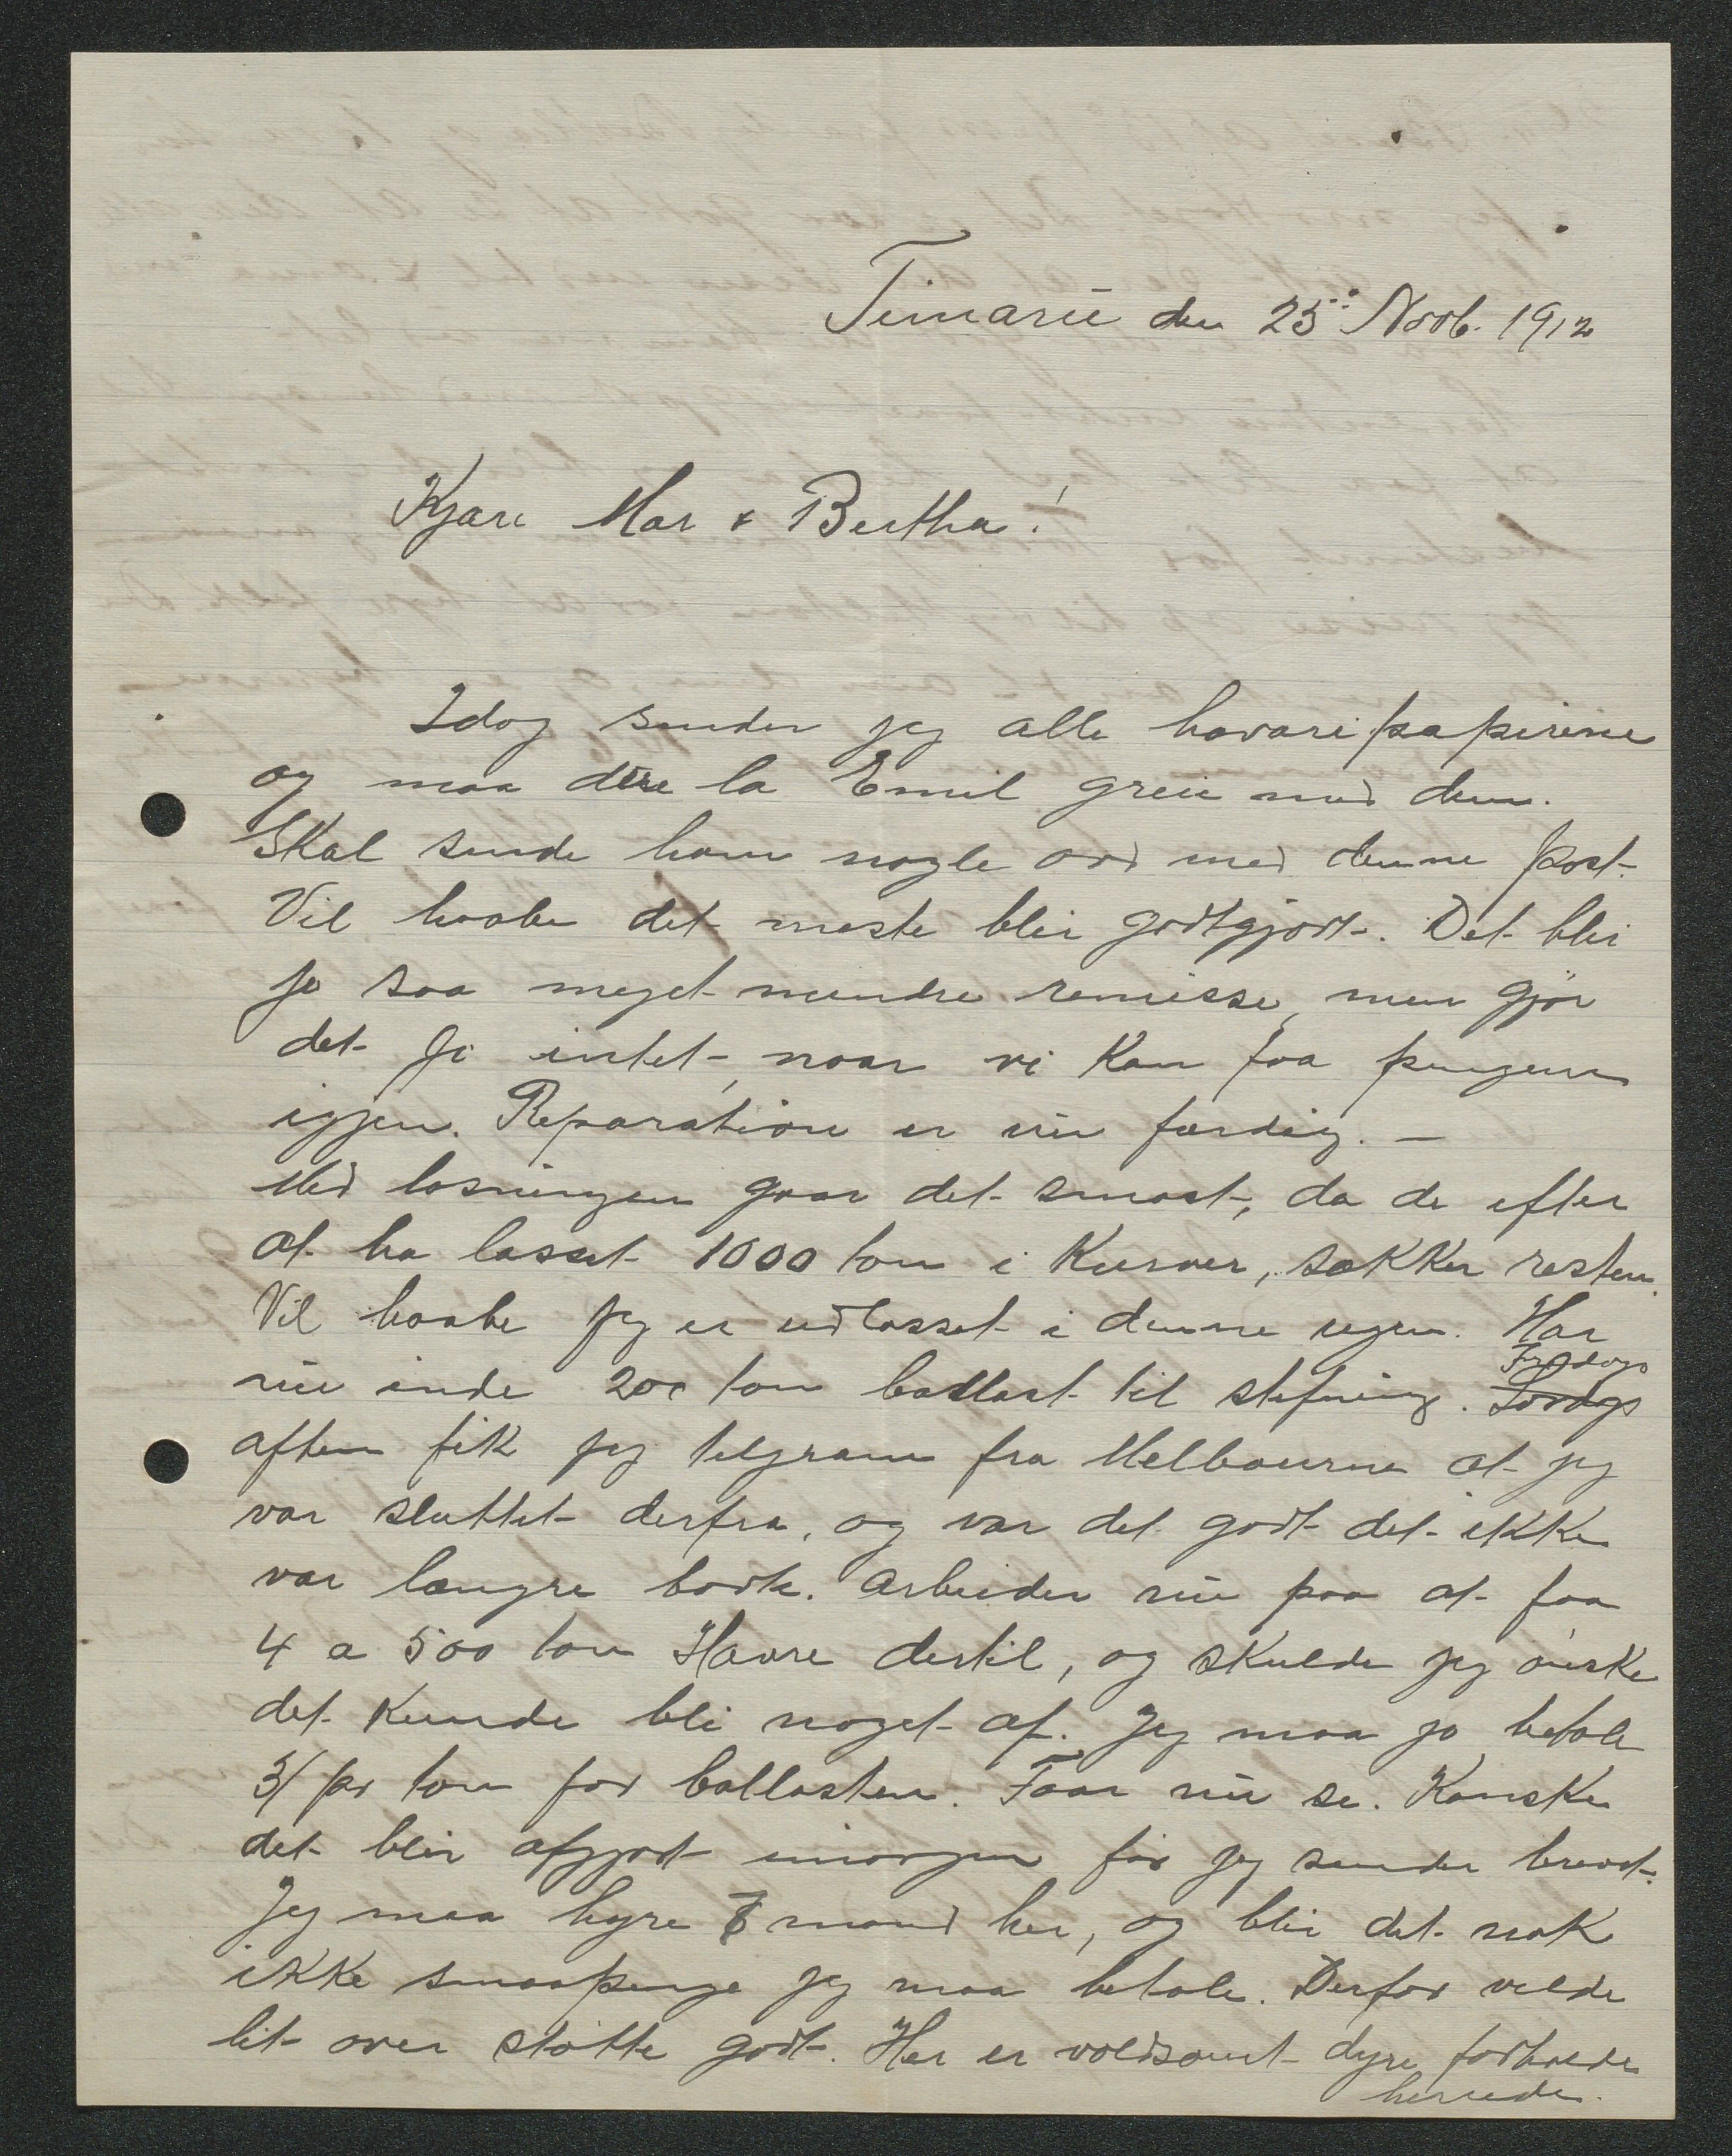 Timaru den 25' Novb. 1912
Kjære Mor & Bertha!
Idag sender jeg alle havaripapirene
og maa dere la Emil greie med dem.
Skal sende ham nogle ord med denne post.
Vil haabe det meste blir godtgjort. Det blir
jo saa meget mindre remisse, men gjør
det jo intet, naar vi kan faa pengene
igjen. Reparationen er nu færdig. –
Med losningen gaar det smaat, da de efter
at ha losset 1000 ton i Kurver, sækker resten.
Vil haabe jeg er udlosset i denne ugen. Har
nu inde 200 ton ballast til stifning. Fredags
aften fik jeg telegram fra Melbourne at jeg
var sluttet derfra, og var det godt det ikke
var længre borte. Arbeider nu paa at faa
4 a 500 ton Havre dertil, og skulde jeg ønske
det kunde bli noget af. Jeg maa jo betale
3/ pr ton for ballasten. Faar nu se. Kanske
det blir afgjort imorgen før jeg sender brevet.
Jeg maa hyre 7 mand her, og blir det nok
ikke smaapenge jeg maa betale. Derfor vilde
lit over støtte godt. Her er voldsomt dyre forholde
hernede.